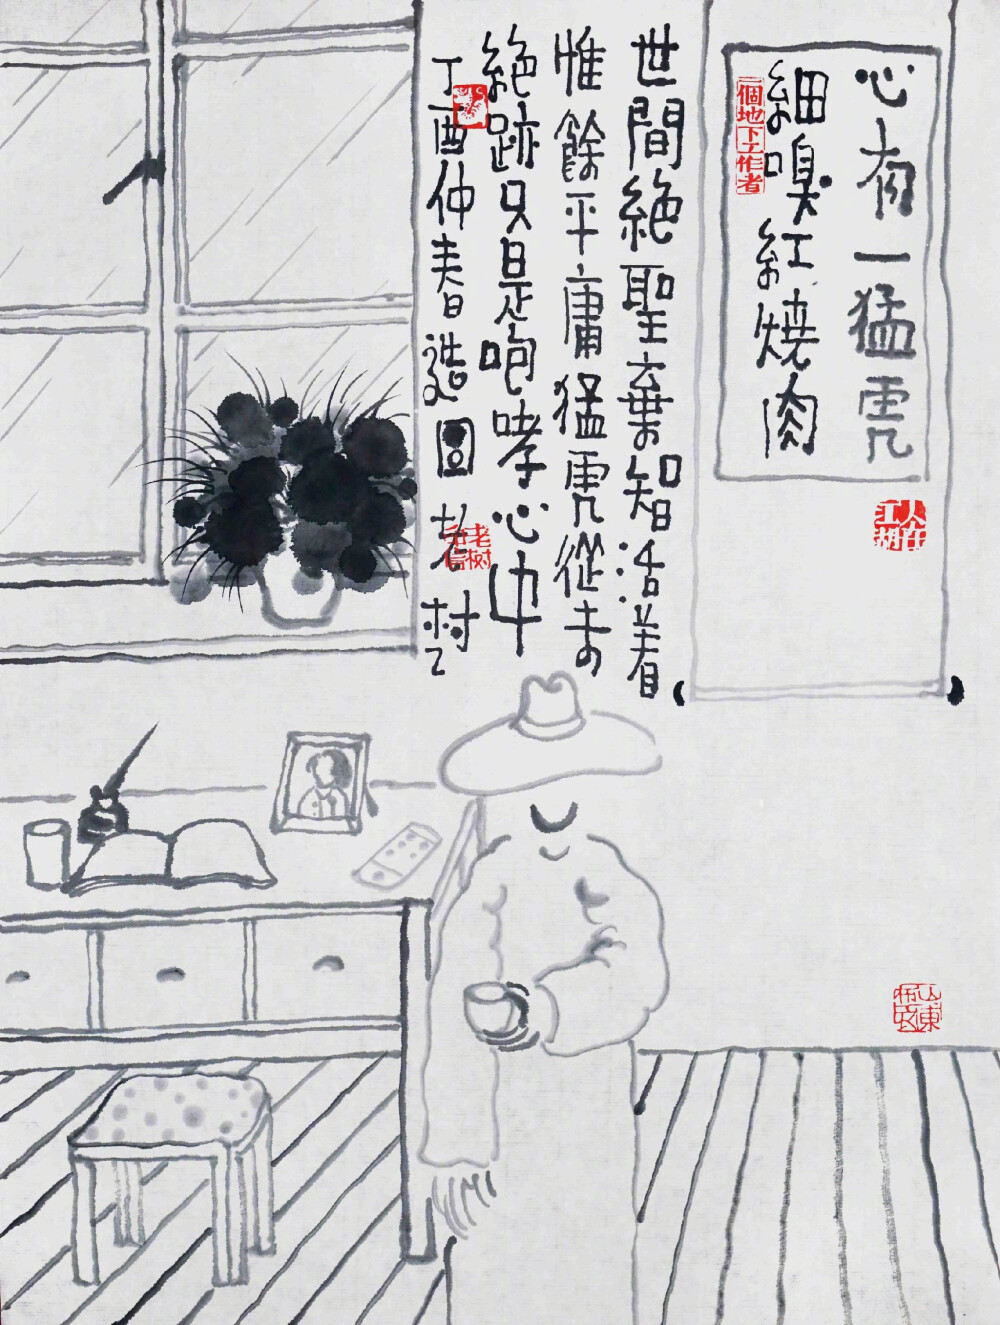 心有一猛虎
細嗅紅燒肉
一個地下工作者
人在江湖
世間絶聖棄智活着
惟餘平庸猛虎從来
絶跡只是咆哮心中
丁酉仲春造圖 老树